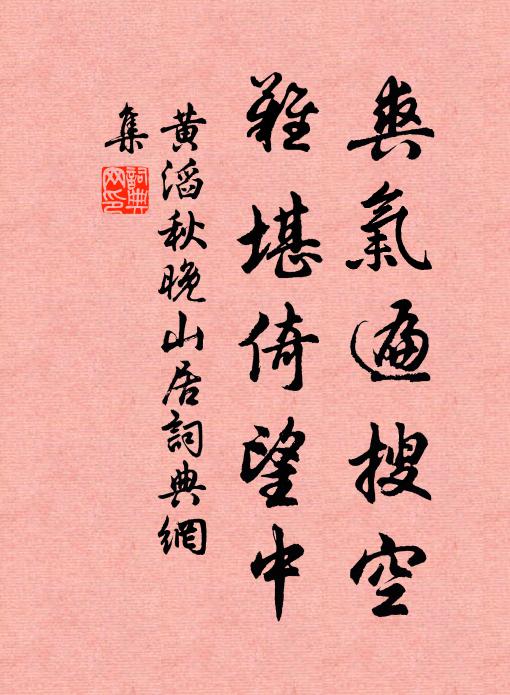 爽氣遍搜空
難堪倚望中
黃滔秋晚山居詞典網
集
詞典網印